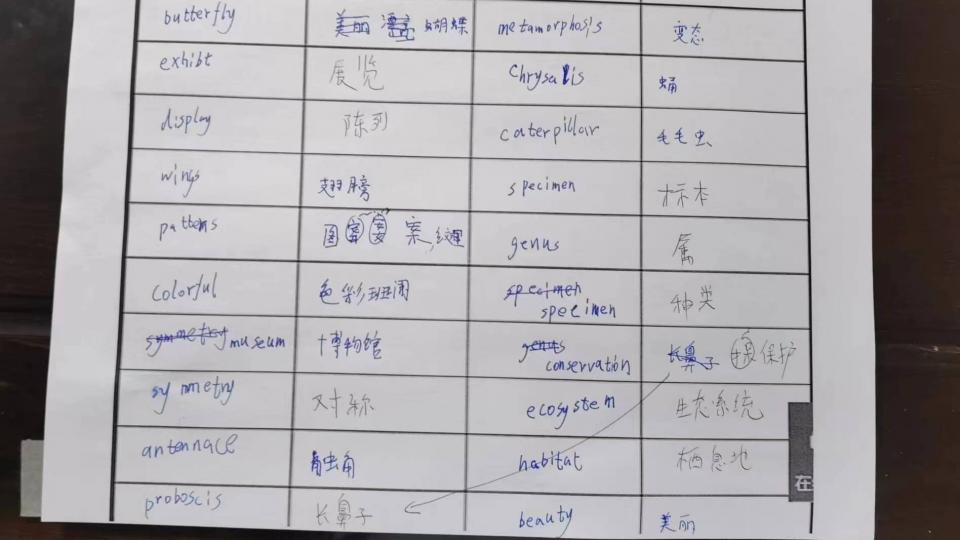 butterfly 蝴蝶 metamorphosis 变态
exhibt 展览 chrysalis 蛹
display 陈列 caterpillar 毛毛虫
wings 翅膀 specimen 标本
patterns 图案,纹理 genus 属
colorful 色彩斑斓 specimen 种类
museum 博物馆 conservation 保护
symmetry 对称 ecosystem 生态系统
antennace 触角 habitat 栖息地
proboscis 长鼻子 beauty 美丽
在